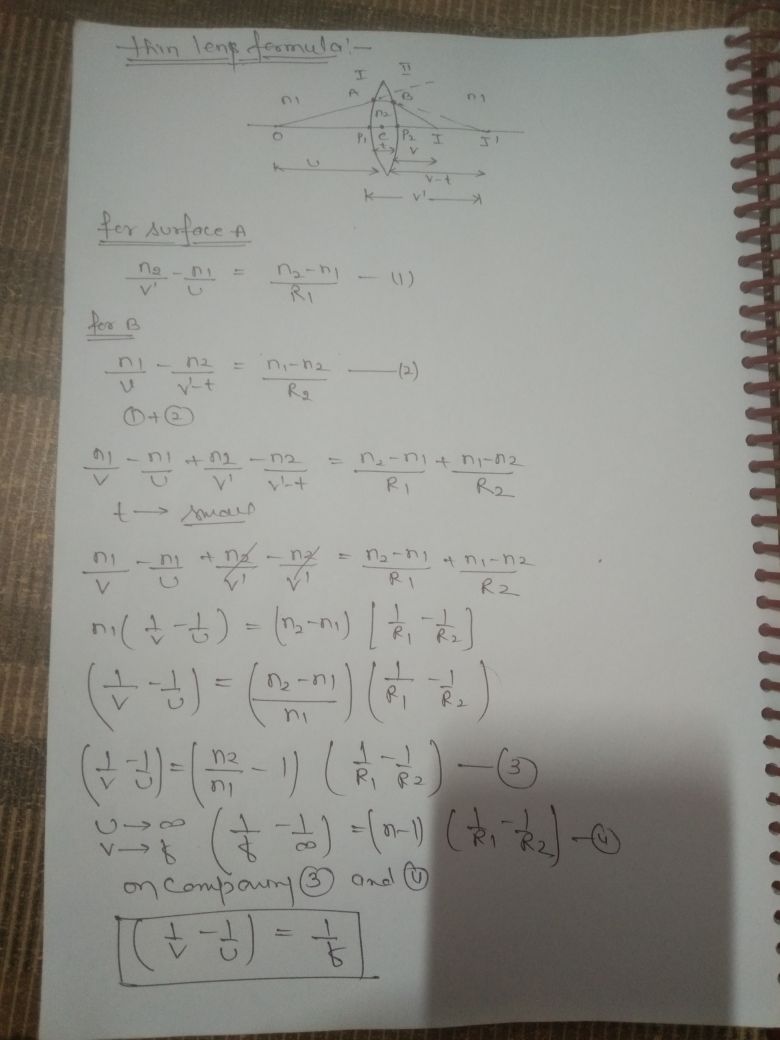 thin lens formula:-
I II
A B
n1 n2 n1
O P1 C P2 I I'
t v
U v-t
v'
for surface A
n2/v' - n1/U = n2-n1/R1 — (1)
for B
n1/v - n2/v'-t = n1-n2/R2 — (2)
① + ②
n1/v - n1/U + n2/v' - n2/v'-t = n2-n1/R1 + n1-n2/R2
t → small
n1/v - n1/U + n2/v' - n2/v' = n2-n1/R1 + n1-n2/R2
n1(1/v - 1/U) = (n2-n1) [1/R1 - 1/R2]
(1/v - 1/U) = (n2-n1/n1) (1/R1 - 1/R2)
(1/v - 1/U) = (n2/n1 - 1) (1/R1 - 1/R2) — ③
U → ∞
v → f (1/f - 1/∞) = (n-1) (1/R1 - 1/R2) — ④
on comparing ③ and ④
(1/v - 1/U) = 1/f